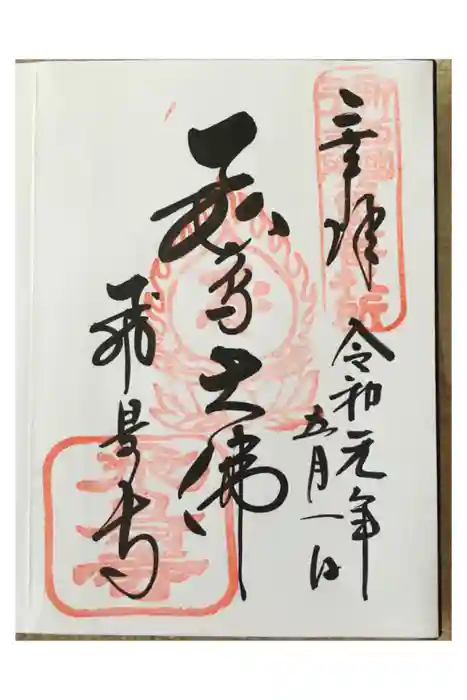 奉拝
令和元年
五月一日
飛鳥大佛
飛鳥寺